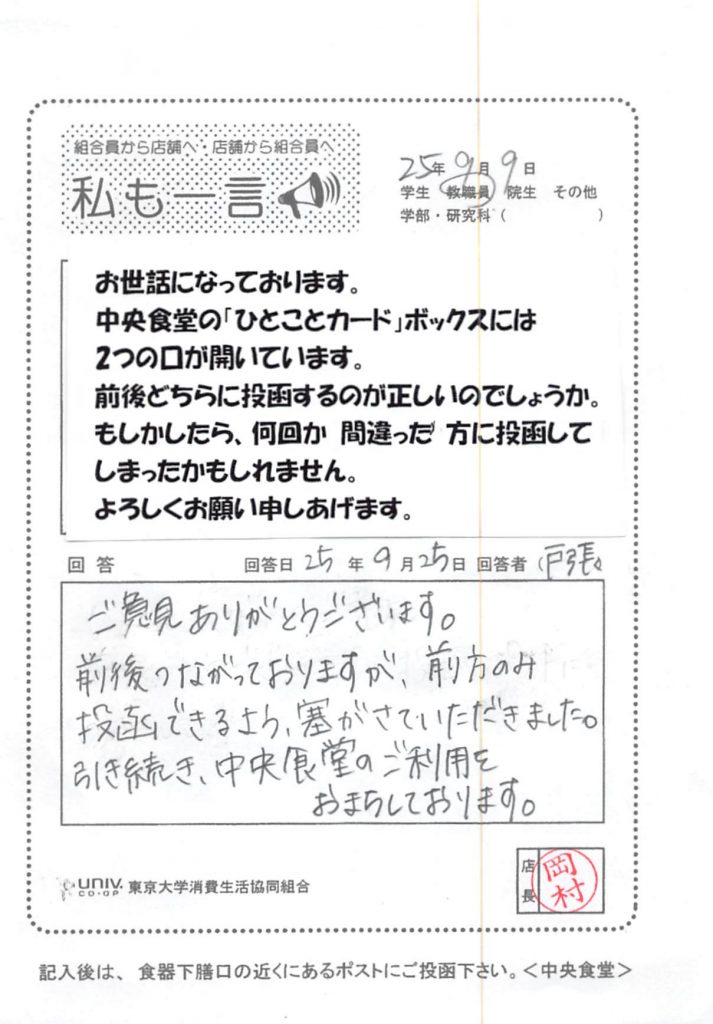 組合員から店舗へ・店舗から組合員へ
私も一言
25年 9月 9日
学生 教職員 院生 その他
学部・研究科( )
お世話になっております。
中央食堂の「ひとことカード」ボックスには
2つの口が開いています。
前後どちらに投函するのが正しいのでしょうか。
もしかしたら、何回か 間違った 方に投函して
しまったかもしれません。
よろしくお願い申しあげます。
回答 回答日 25 年 9 月 25日 回答者(戸張
ご意見ありがとうございます。
前後つながっておりますが、前方のみ
投函できるよう、塞がさていただきました。
引き続き、中央食堂のご利用を
おまちしております。
UNIV. CO-OP 東京大学消費生活協同組合
店長 岡村
記入後は、食器下膳口の近くにあるポストにご投函下さい。<中央食堂>